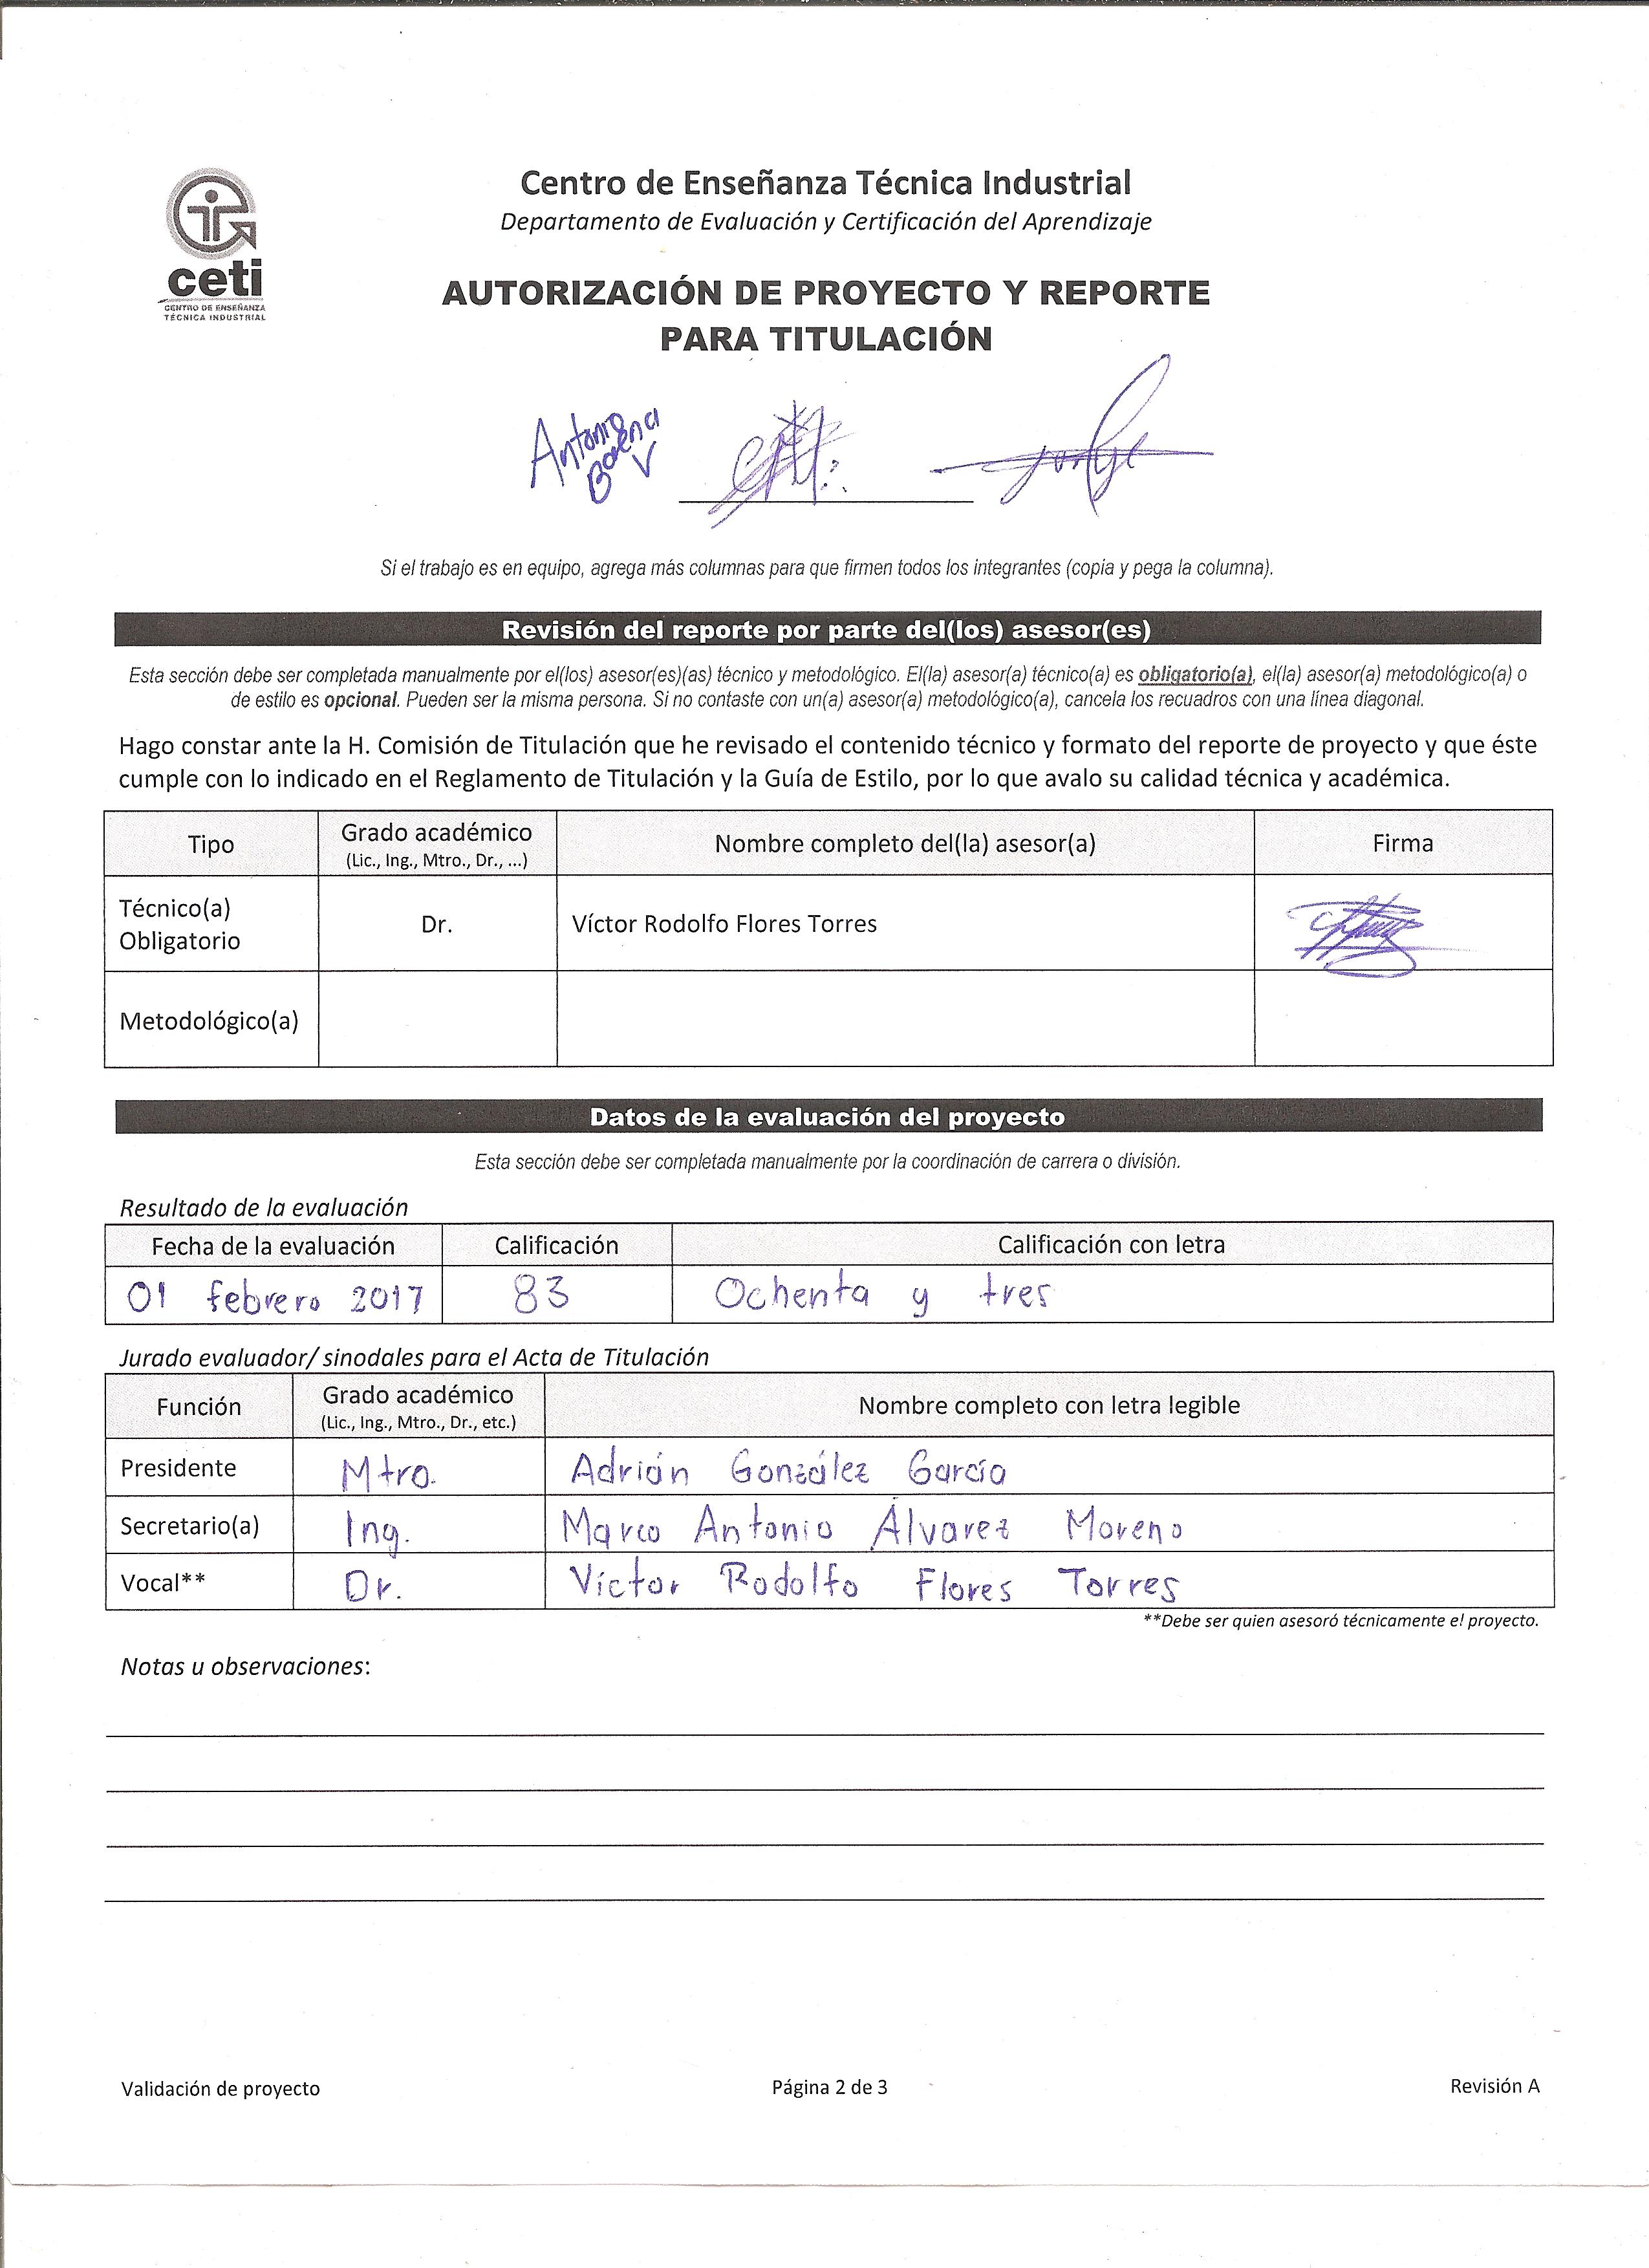 Centro de Enseñanza Técnica Industrial
Departamento de Evaluación y Certificación del Aprendizaje
ceti
CENTRO DE ENSEÑANZA
TÉCNICA INDUSTRIAL
AUTORIZACIÓN DE PROYECTO Y REPORTE
PARA TITULACIÓN
Antonio
Baena
V
Jorge
Si el trabajo es en equipo, agrega más columnas para que firmen todos los integrantes (copia y pega la columna).
Revisión del reporte por parte del(los) asesor(es)
Esta sección debe ser completada manualmente por el(los) asesor(es)(as) técnico y metodológico. El(la) asesor(a) técnico(a) es obligatorio(a), el(la) asesor(a) metodológico(a) o
de estilo es opcional. Pueden ser la misma persona. Si no contaste con un(a) asesor(a) metodológico(a), cancela los recuadros con una línea diagonal.
Hago constar ante la H. Comisión de Titulación que he revisado el contenido técnico y formato del reporte de proyecto y que éste
cumple con lo indicado en el Reglamento de Titulación y la Guía de Estilo, por lo que avalo su calidad técnica y académica.
Tipo Grado académico Nombre completo del(la) asesor(a) Firma
(Lic., Ing., Mtro., Dr., ...)
Técnico(a)
Obligatorio Dr. Víctor Rodolfo Flores Torres
Metodológico(a)
Datos de la evaluación del proyecto
Esta sección debe ser completada manualmente por la coordinación de carrera o división.
Resultado de la evaluación
Fecha de la evaluación Calificación Calificación con letra
01 febrero 2017 83 Ochenta y tres
Jurado evaluador/ sinodales para el Acta de Titulación
Función Grado académico Nombre completo con letra legible
(Lic., Ing., Mtro., Dr., etc.)
Presidente Mtro. Adrián González García
Secretario(a) Ing. Marco Antonio Álvarez Moreno
Vocal** Dr. Víctor Rodolfo Flores Torres
**Debe ser quien asesoró técnicamente el proyecto.
Notas u observaciones:
Validación de proyecto Página 2 de 3 Revisión A